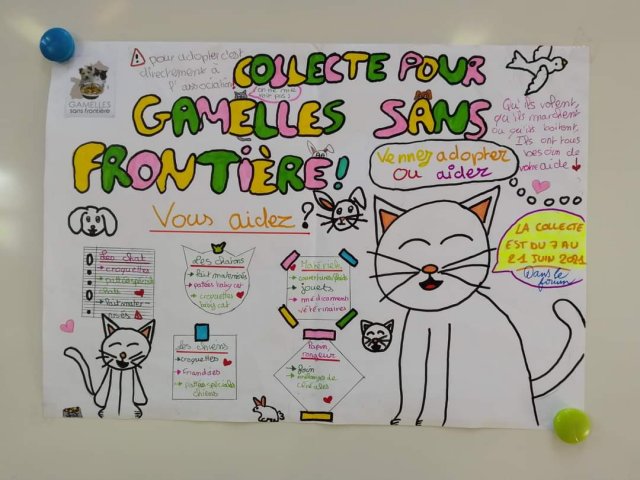 ⚠ pour adopter c'est
directement à
l'association
COLLECTE POUR
GAMELLES SANS
FRONTIÈRE!
GAMELLES
sans frontière
Qu'ils volent,
qu'ils marchent
ou qu'ils boitent,
Ils ont tous
besoin de
votre aide
Vennez adopter
ou aider
Vous aidez?
LA COLLECTE
EST DU 7 AU
21 JUIN 2021
Dans le
forum
Les chat
→ croquettes
chat
→ lait mater
Les chatons
→ lait maternisés
→ patées baby cat
→ croquettes
baby cat
Matériels
→ jouets
→ médicaments
vétérinaires
Les chiens
→ croquettes
→ friandises
→ patées spéciales
chiens
Lapin,
rongeur
→ foin
→ mélanges de
céréales